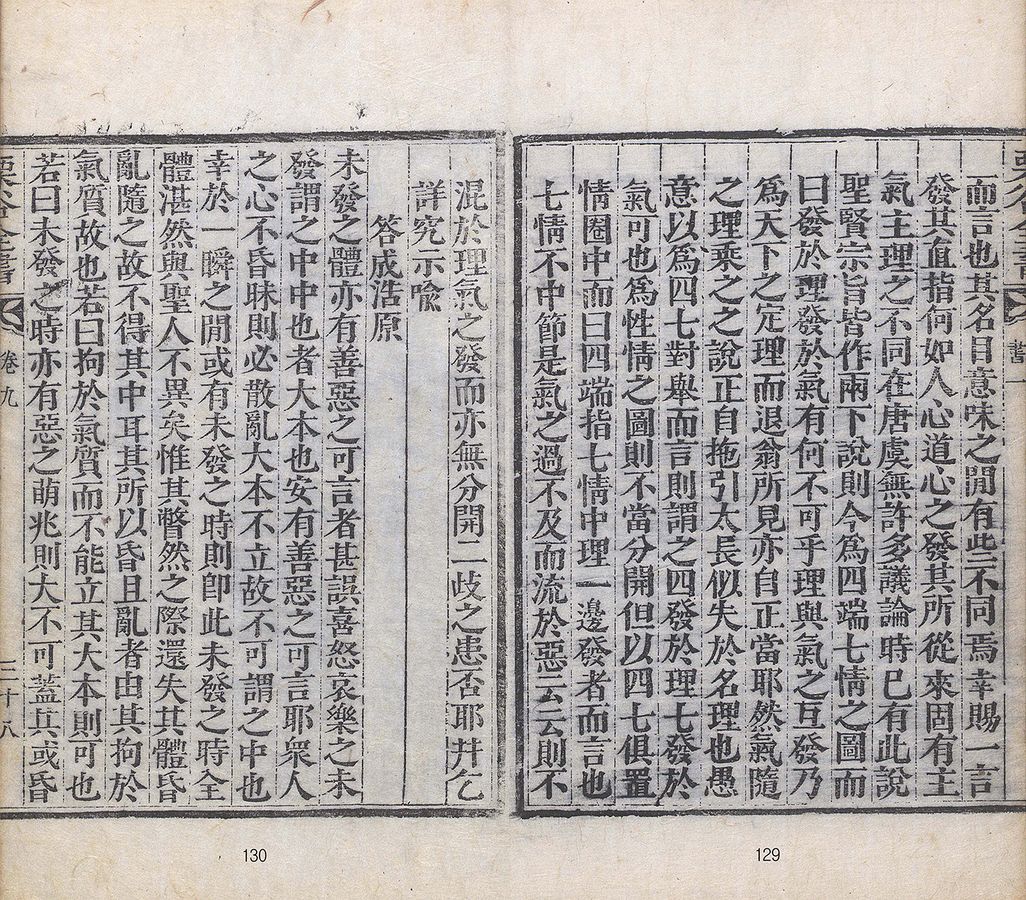 而言也其名目意味之間有些不同焉幸賜一言
發其直指何如人心道心之發其所從來固有主
氣主理之不同在唐虞無許多議論時已有此說
聖賢宗旨皆作兩下說則今爲四端七情之圖而
曰發於理發於氣有何不可乎理與氣之互發乃
爲天下之定理而退翁所見亦自正當耶然氣隨
之理乘之之說正自拖引太長似失於名理也愚
意以爲四七對舉而言則謂之四發於理七發於
氣可也爲性情之圖則不當分開但以四七俱置
情圈中而曰四端指七情中理一邊發者而言也
七情不中節是氣之過不及而流於惡云云則不
混於理氣之發而亦無分開二歧之患否耶幷乞
詳究示喩
答成浩原
未發之體亦有善惡之可言者甚誤喜怒哀樂之未
發謂之中中也者大本也安有善惡之可言耶衆人
之心不昏昧則必散亂大本不立故不可謂之中也
幸於一瞬之閒或有未發之時則卽此未發之時全
體湛然與聖人不異矣惟其瞥然之際還失其體昏
亂隨之故不得其中耳其所以昏且亂者由其拘於
氣質故也若曰拘於氣質而不能立其大本則可也
若曰未發之時亦有惡之萌兆則大不可蓋其或昏
栗谷全書
卷九
二十八
129
130